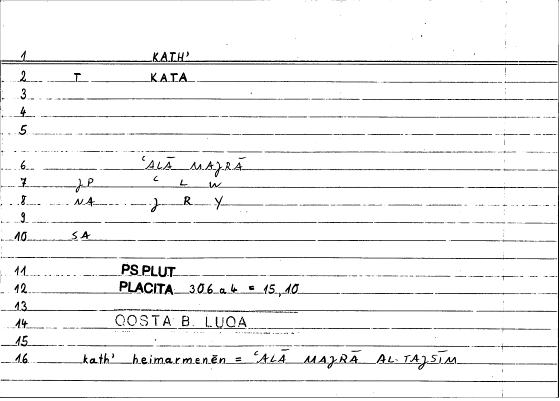 1 KATH'
2 T KATA
3
4
5
6 ʿALĀ MAJRĀ
7 JP ʿ L W
8 NA J R Y
9
10 SA
11 PS PLUT
12 PLACITA 306 a 4 = 15,10
13
14 QOSTA B. LUQA
15
16 kath' heimarmenēn = ʿALĀ MAJRĀ AL-TAJSĪM